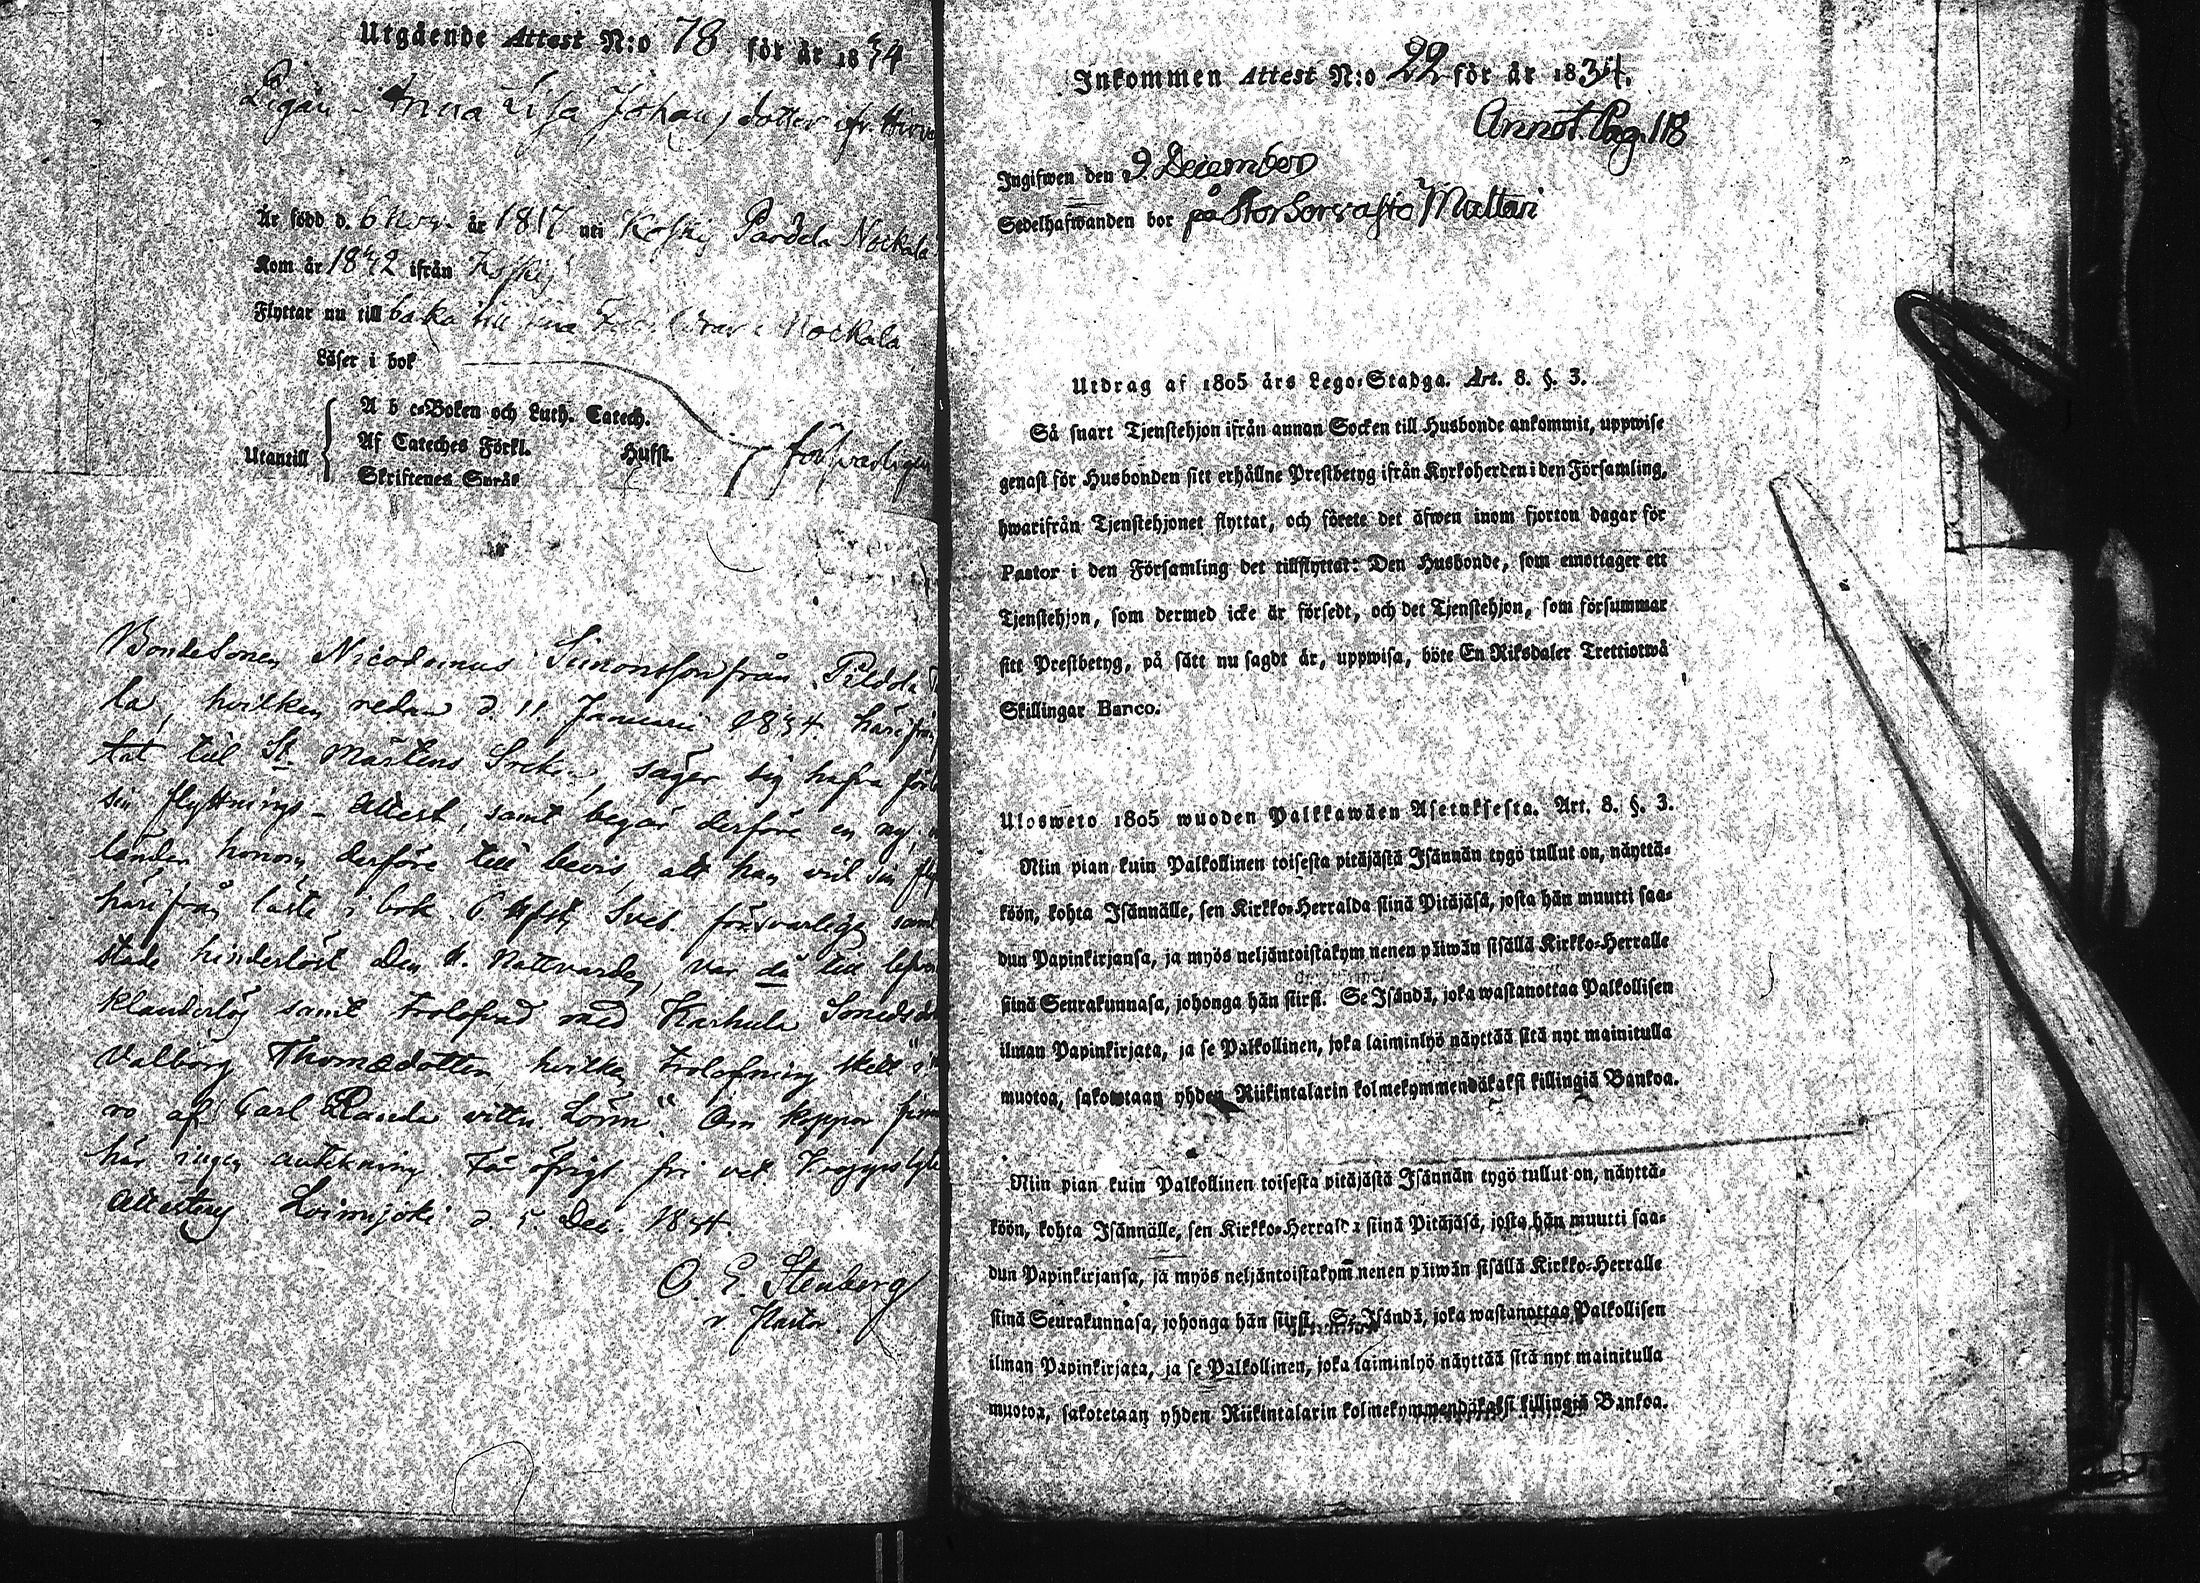 Utgående Attest N:o 78 för år 1834
Pigan Anna Lisa Johansdotter ifr.
Är född d. 6 Nov. år 1817 uti Koskis Nockala
Kom år 1832 ifrån Koskis
Flyttar nu till baka till sina Nockala
Läser i bok
Utantill
A b c-Boken och Luth. Catech.
Af Cateches Förkl. Husst.
Skriftenes Språk
försvarligen
Bondesonen Nicodemus Simonsson från
la, hvilken redan d. 11. Januarii 1834 härifrån
tat till St. Mårtens Socken, säger sig hafva
sin flyttnings-attest, samt begär derföre en ny,
länder honom derföre till bevis, att han vid sin
härifrån läste i bok försvarligen samt
stade hinderlöst Den H. Nattvarden, var då till
klanderlös samt trolofvad med Karhula
Valborg Thomædotter, hvilken trolofning
ro af Carl vittn. Om koppor
här ingen antekning. För öfrigt fri
attesteras. Loimijoki d. 5. Dec. 1834.
O. E. Stenberg
v. Pastor.
Inkommen Attest N:o 22 för år 1834.
Annot. Pag. 118
Ingifwen den 9 December
Sedelhafwanden bor på Storsorvasto Maltari
Utdrag af 1805 års Lego-Stadga. Art. 8. §. 3.
Så snart Tjenstehjon ifrån annan Socken till Husbonde ankommit, uppwise
genast för Husbonden sitt erhållne Prestbetyg ifrån Kyrkoherden i den Församling,
hwarifrån Tjenstehjonet flyttat, och förete det äfwen inom fjorton dagar för
Pastor i den Församling det tillflyttat: Den Husbonde, som emottager ett
Tjenstehjon, som dermed icke är försedt, och det Tjenstehjon, som försummar
sitt Prestbetyg, på sätt nu sagdt är, uppwisa, böte En Riksdaler Trettiotwå
Skillingar Banco.
Ulosweto 1805 wuoden Palkkawäen Asetuksesta. Art. 8. §. 3.
Niin pian kuin Palkollinen toisesta pitäjästä Isännän tygö tullut on, näyttä-
köön, kohta Isännälle, sen Kirkko-Herralda siinä Pitäjäsä, josta hän muutti saa-
dun Papinkirjansa, ja myös neljäntoistakym nenen päiwän sisällä Kirkko-Herralle
siinä Seurakunnasa, johonga hän siirsi. Se Isändä, joka wastanottaa Palkollisen
ilman Papinkirjata, ja se Palkollinen, joka laiminlyö näyttää sitä nyt mainitulla
muotoa, sakotetaan yhden Riikintalarin kolmekymmendäkaksi killingiä Bankoa.
Niin pian kuin Palkollinen toisesta pitäjästä Isännän tygö tullut on, näyttä-
köön, kohta Isännälle, sen Kirkko-Herralda siinä Pitäjäsä, josta hän muutti saa-
dun Papinkirjansa, ja myös neljäntoistakym nenen päiwän sisällä Kirkko-Herralle
siinä Seurakunnasa, johonga hän siirsi. Se Isändä, joka wastanottaa Palkollisen
ilman Papinkirjata, ja se Palkollinen, joka laiminlyö näyttää sitä nyt mainitulla
muotoa, sakotetaan yhden Riikintalarin kolmekymmendäkaksi killingiä Bankoa.